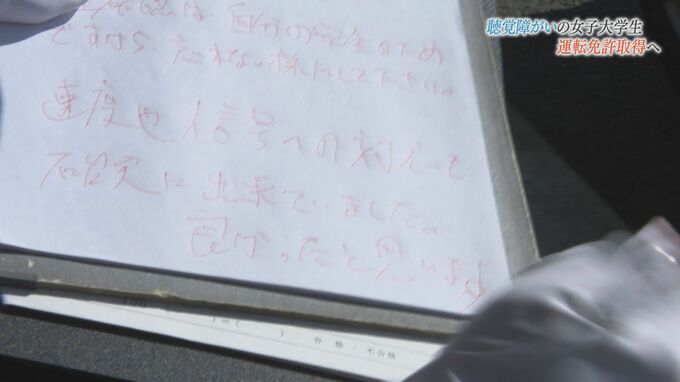 聴覚障がいの女子大学生
運転免許取得へ
は、自分の安全のため
ですから、忘れない様にして下さい。
速度や信号への対応も
確実に出来ていました。
良かったと思います
合格・不合格